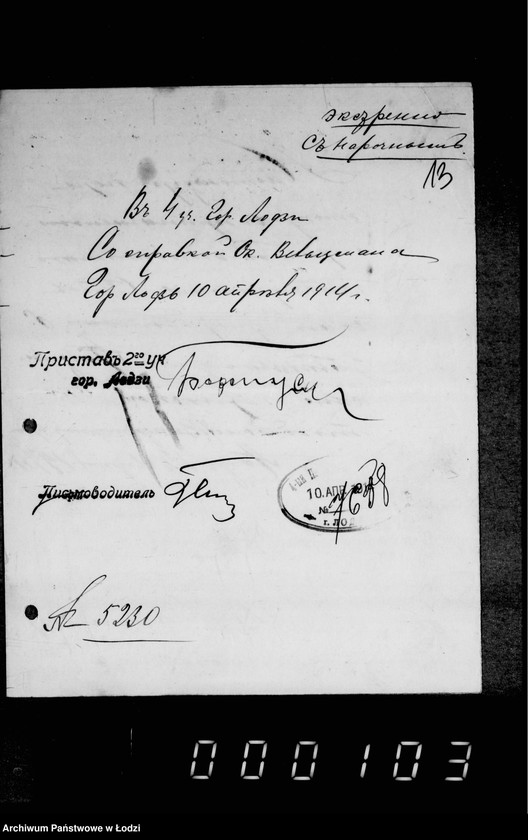 экстренно
Съ нарочнымъ
13
Въ 4 уч. Гор. Лодзи
Со справкой Ок.
Гор Лодзь 10 апреля 1914 г.
Приставъ 2го уч
гор. Лодзи
Письмоводитель
10. АПР
№ 7638
г. ЛОД
№ 5230
000103
Archiwum Państwowe w Łodzi